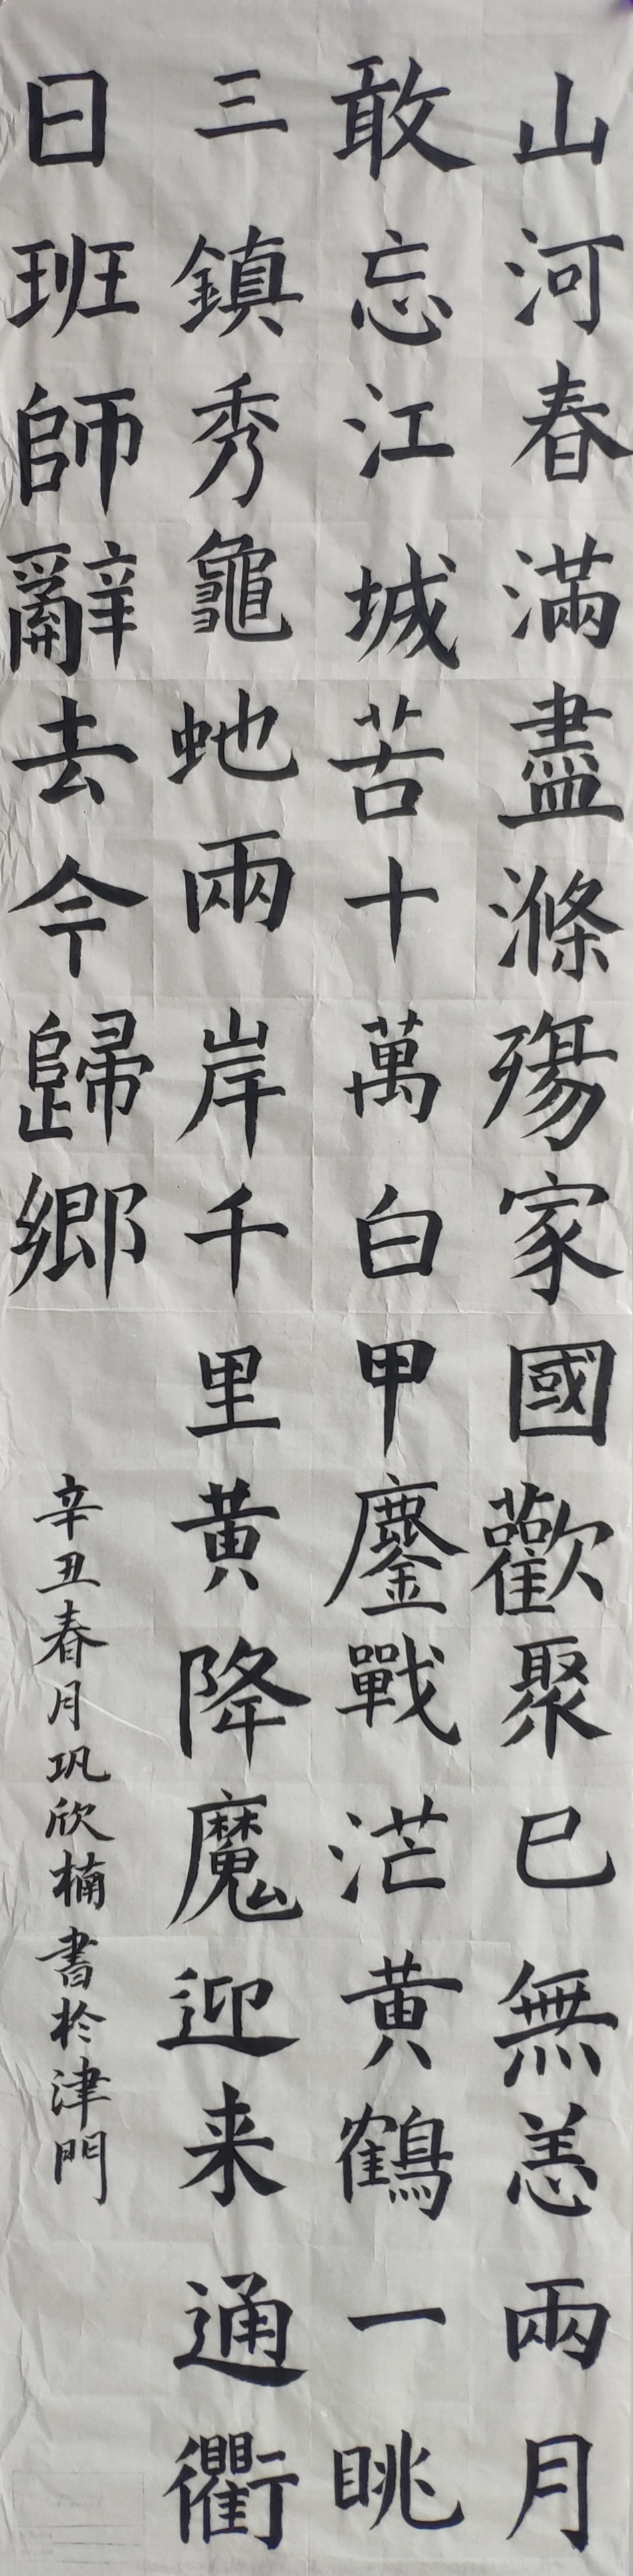 山河春滿盡滌殤家國歡聚已無恙兩月
敢忘江城苦十萬白甲鏖戰茫黃鶴一眺
三鎮秀龜虵兩岸千里黃降魔迎来通衢
日班師辭去今歸鄉
辛丑春月巩欣楠書於津門